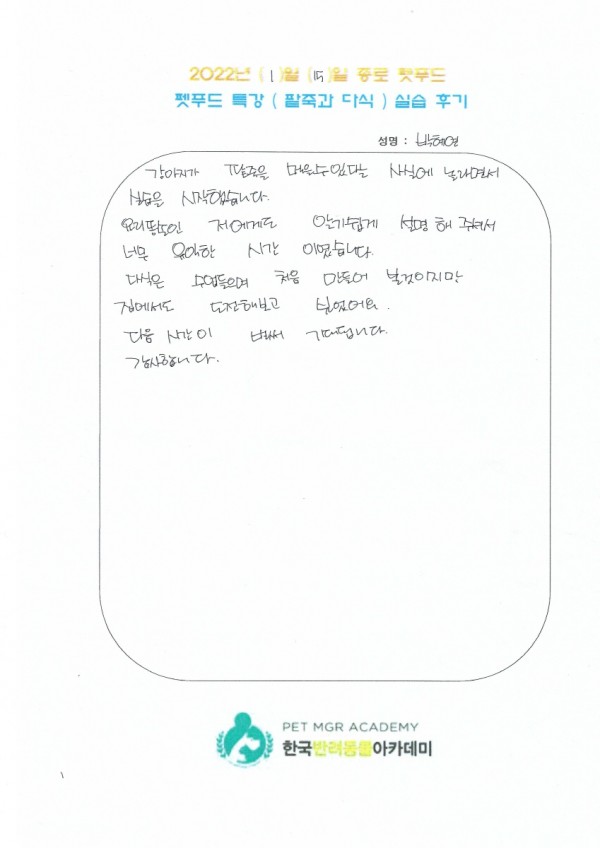 2022년 ( 1 )월 (15)일 종로 펫푸드
펫푸드 특강 ( 팥죽과 다식 ) 실습 후기
성명 : 박혜연
강아지가 팥죽을 먹을수있다는 사실에 놀라면서
실습을 시작했습니다.
요리똥손인 저에게도 알기쉽게 설명 해 주셔서
너무 유익한 시간 이였습니다.
다식은 수업들으며 처음 만들어 본것이지만
집에서도 도전해보고 싶었어요.
다음 시간이 벌써 기대됩니다.
감사합니다.
PET MGR ACADEMY
한국반려동물아카데미